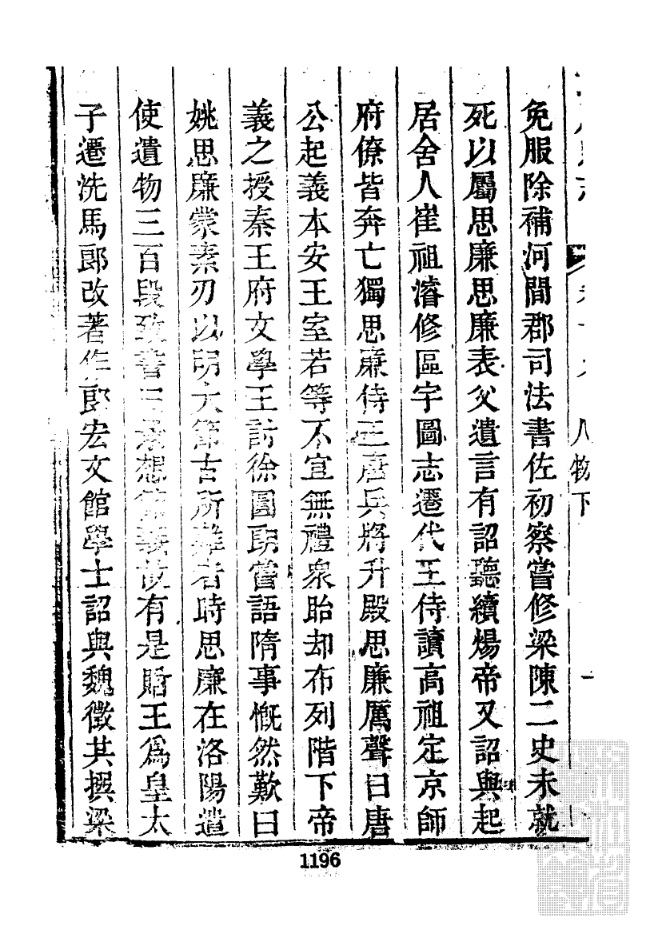 人物下
免服除補河間郡司法書佐初察嘗修梁陳二史未就
死以屬思廉思廉表父遺言有詔聽續煬帝又詔與起
居舍人崔祖濬修區宇圖志遷代王侍讀高祖定京師
府僚皆奔亡獨思廉侍王唐兵將升殿思廉厲聲曰唐
公起義本安王室若等不宜無禮眾眙却布列階下帝
義之授秦王府文學王討徐圓朗嘗語隋事慨然歎曰
姚思廉蒙素刃以明大節古所難者時思廉在洛陽遣
使遺物三百段致書曰景想節義故有是賜王為皇太
子遷洗馬郎改著作郎宏文館學士詔與魏徵共撰梁
1196